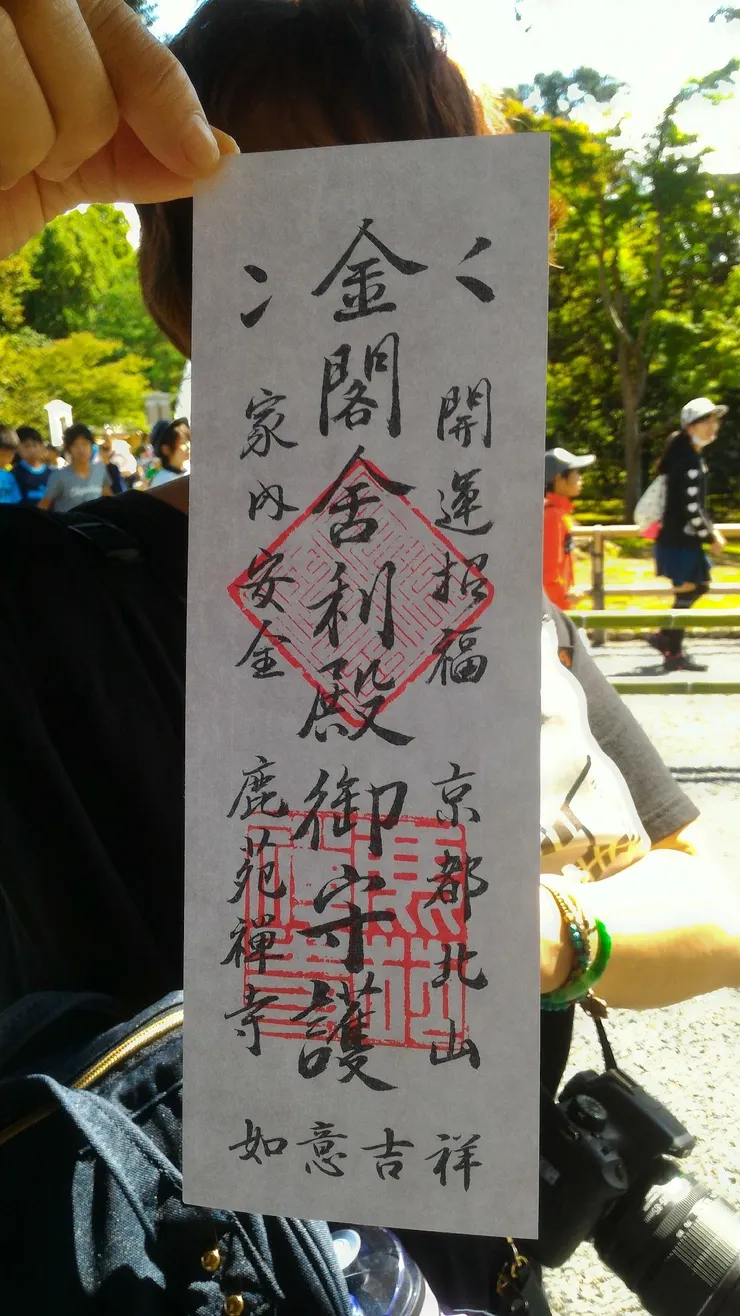 開運招福
京都北山
金閣舎利殿御守護
家内安全
鹿苑禪寺
如意吉祥